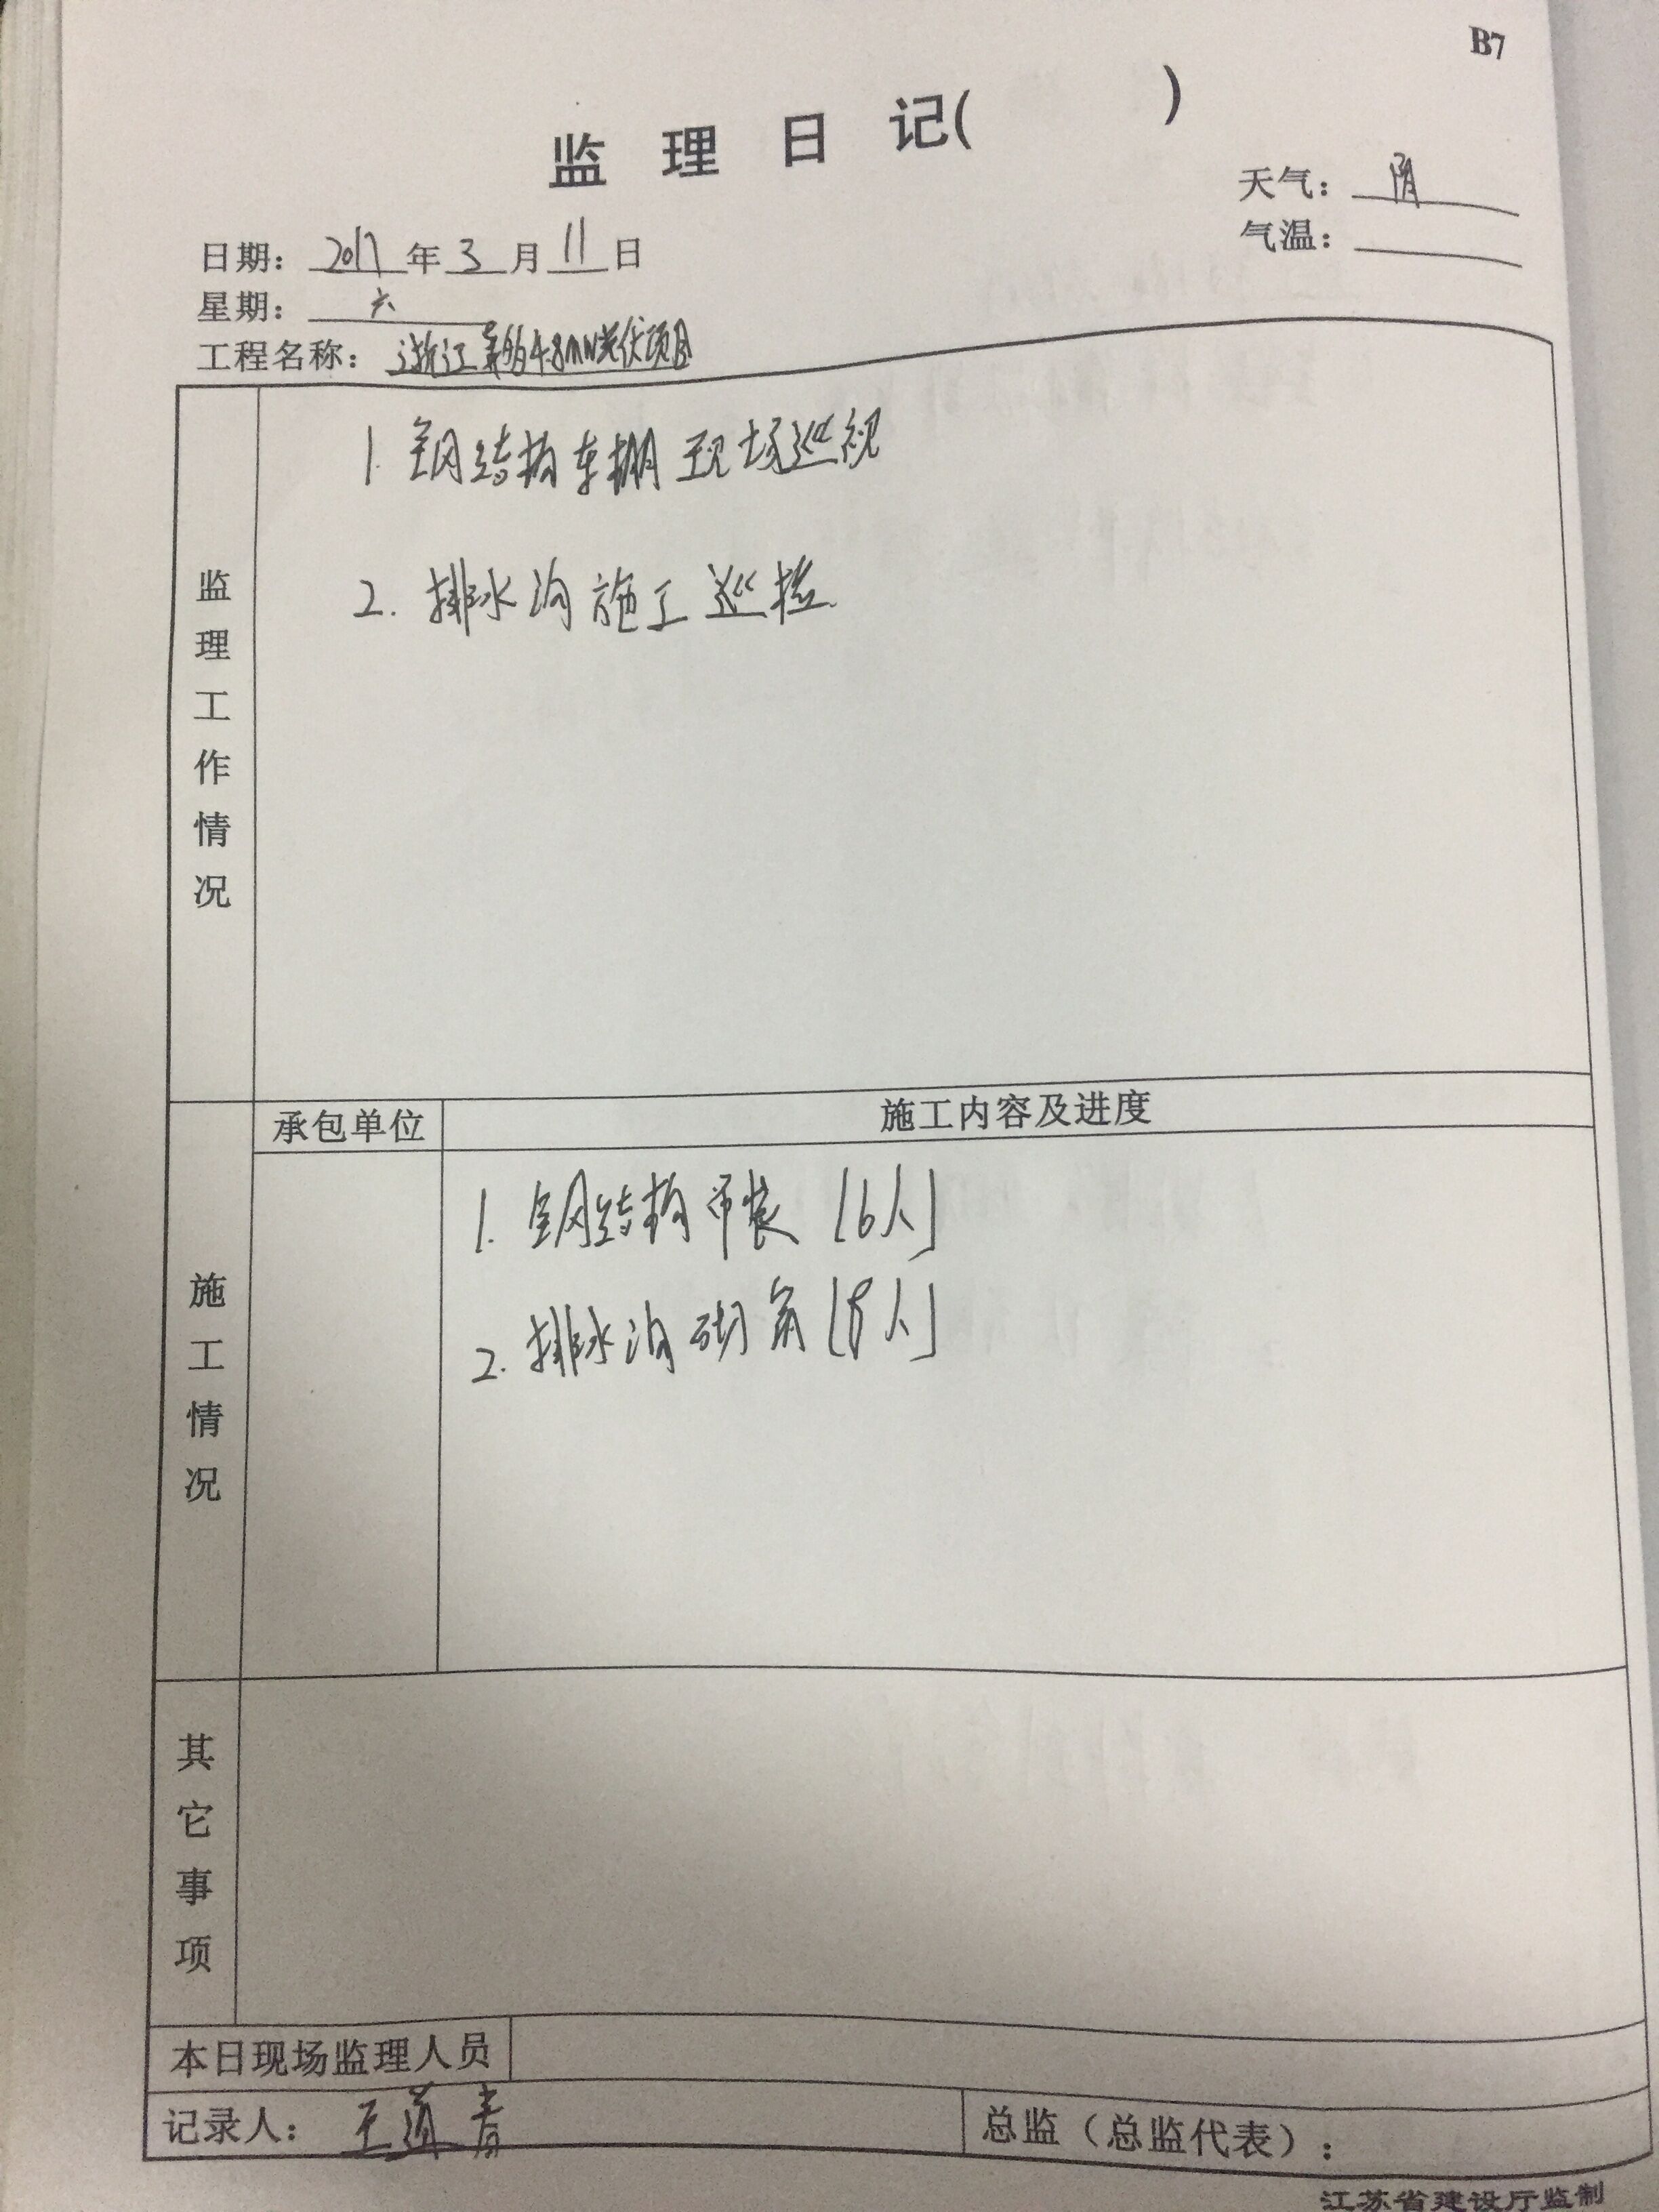 B7
监 理 日 记( )
天气: 阴
气温:
日期: 2017 年 3 月 11 日
星期: 六
工程名称: 浙江 4.8MW光伏项目
监理工作情况
1. 钢结构车棚现场巡视
2. 排水沟施工巡检
承包单位 施工内容及进度
施工情况
1. 钢结构吊装 (6人)
2. 排水沟砌筑 (8人)
其它事项
本日现场监理人员
记录人: 王道青
总监(总监代表):
江苏省建设厅监制